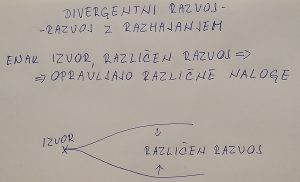 DIVERGENTNI RAZVOJ-
-RAZVOJ Z RAZHAJANJEM
ENAK IZVOR, RAZLIČEN RAZVOJ =>
=> OPRAVLJAJO RAZLIČNE NALOGE
IZVOR
RAZLIČEN RAZVOJ